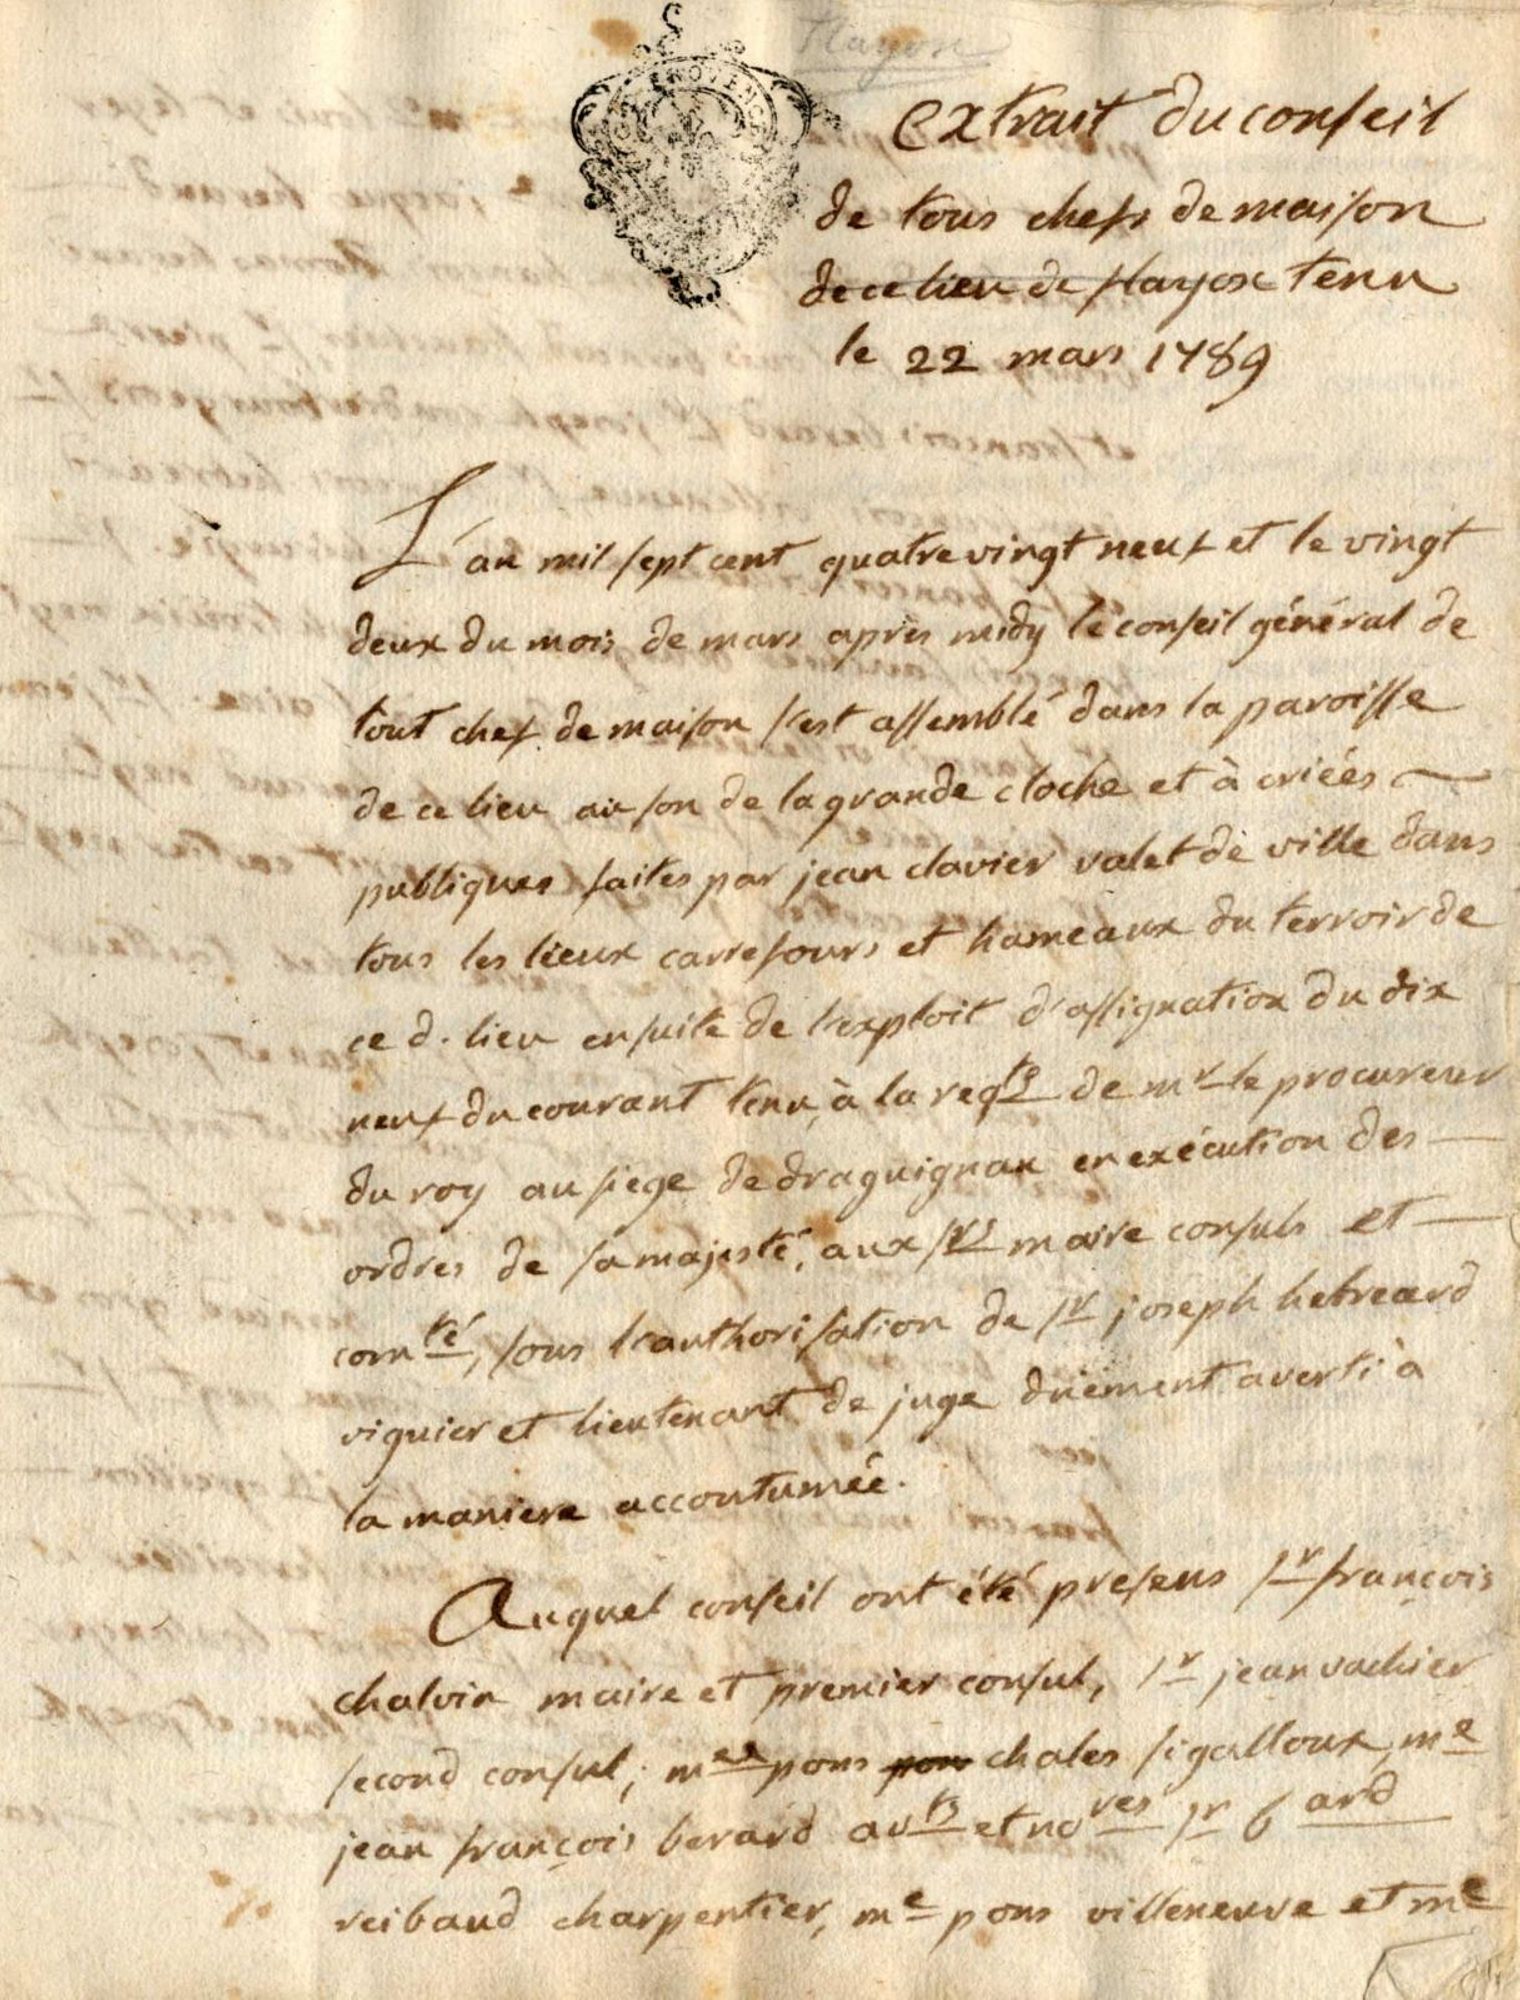 Flayosc
PROVENCE
extrait du conseil
de tous chefs de maison
de ce lieu de flayosc tenu
le 22 mars 1789
L'an mil sept cent quatre vingt neuf et le vingt
deux du mois de mars après midy le conseil général de
tout chef de maison s'est assemblé dans la paroisse
de ce lieu au son de la grande cloche et à criées
publiques faites par jean clavier valet de ville dans
tous les lieux carrefours et hameaux du terroir de
ce d. lieu ensuite de l'exploit d'assignation du dix
neuf du courant tenu, à la reqte de mr le procureur
du roy au siege de draguignan en exécution des
ordres de sa majesté, aux srs maire consuls et
comté, sous l'authorisation de sr joseph hebreard
viguier et lieutenant de juge düement averti à
la maniere accoutumée.
Auquel conseil ont été presens sr françois
chalvin maire et premier consul, sr jean vachier
second consul; mes pons pon chales sigalloux, me
jean françois berard avts et nores sr bard
reibaud charpentier, me pons villeneuve et me